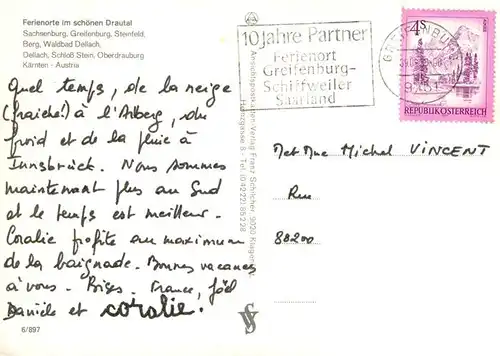 Ferienorte im schönen Drautal
Sachsenburg, Greifenburg, Steinfeld,
Berg, Waldbad Dellach,
Dellach, Schloß Stein, Oberdrauburg
Kärnten - Austria
Quel temps, de la neige
(fraîche!) à l'Arberg, du
froid et de la pluie à
Innsbrück. Nous sommes
maintenant plus au Sud
et le temps est meilleur.
Coralie profite au maximum
de la baignade. Bonnes vacances
à vous. Bises. France, Joël
Danièle et coralie.
6/897
10 Jahre Partner
Ferienort
Greifenburg-
Schiffweiler
Saarland
GREIFENBURG
9761
4S
REPUBLIK ÖSTERREICH
Ansichtskarten-Verlag Franz Schilcher, 9020 Klagenfurt
Tel. (0 42 22) 85 2 28
M et Mme Michel VINCENT
Rue
88200